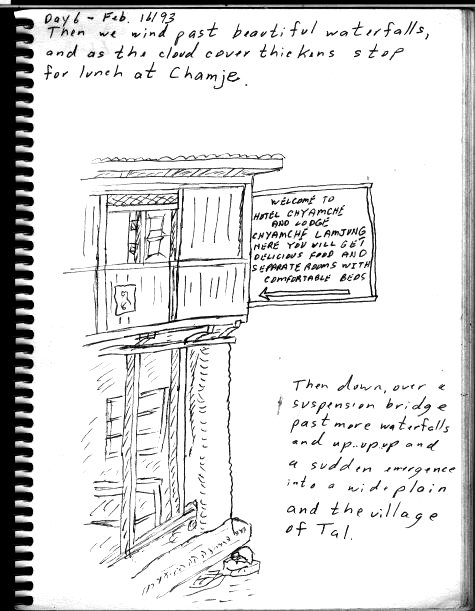 Day 6 - Feb. 16/93
Then we wind past beautiful waterfalls,
and as the cloud cover thickens stop
for lunch at Chamje.
WELCOME TO
HOTEL CHYAMCHE
AND LODGE
CHYAMCHE LAMJUNG
HERE YOU WILL GET
DELICIOUS FOOD AND
SEPARATE ROOMS WITH
COMFORTABLE BEDS
Then down, over a
suspension bridge
past more waterfalls
and up..up.up and
a sudden emergence
into a wide plain
and the village
of Tal.